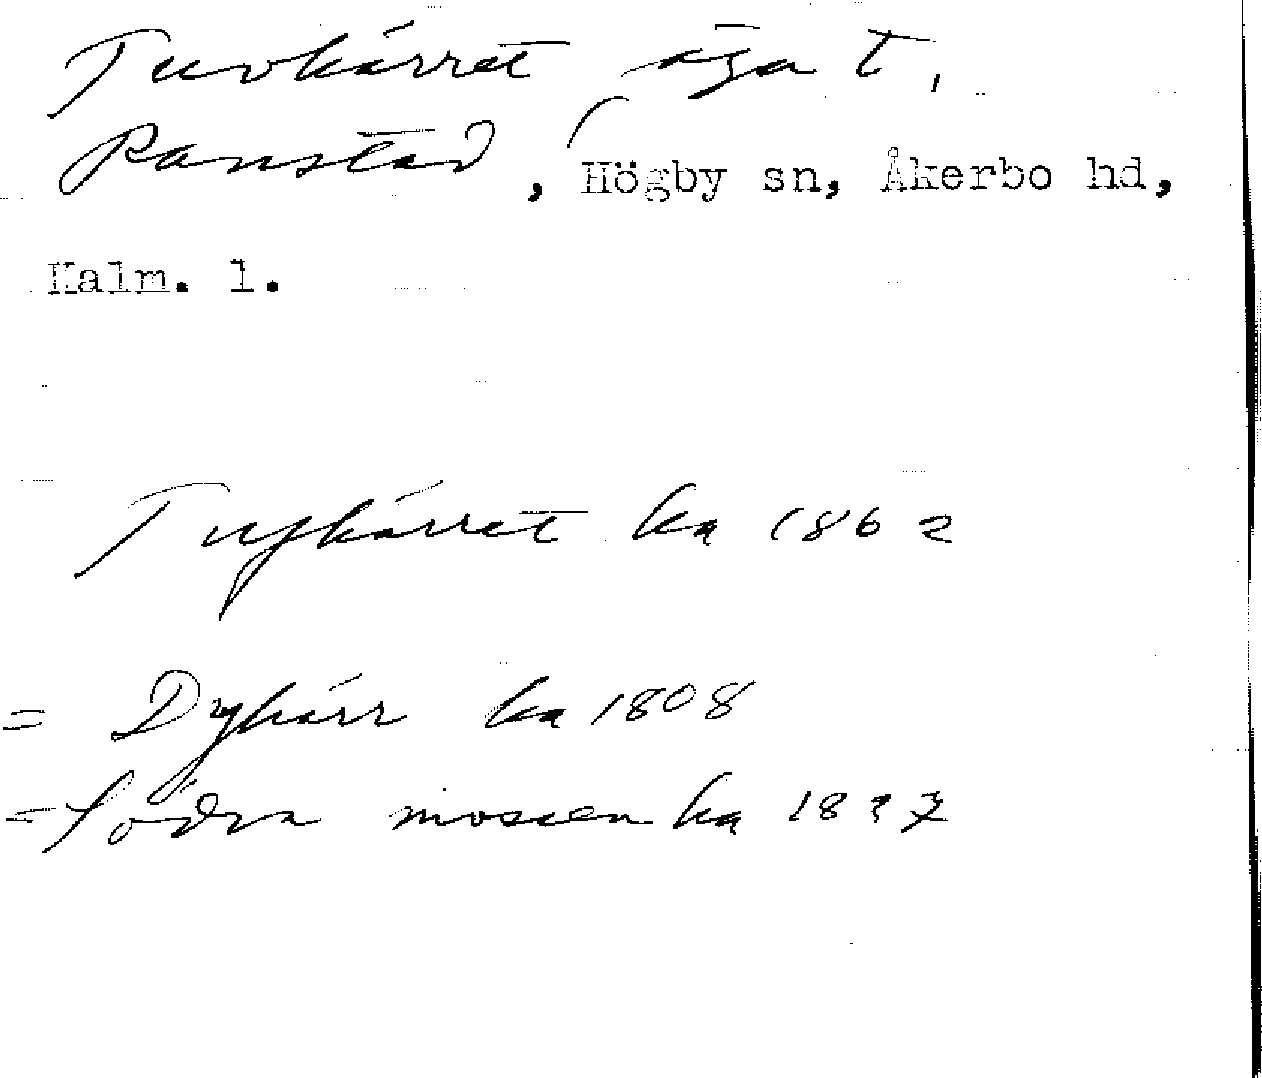 Tuvkärret äga t.
Ranstad, Högby sn, Åkerbo hd,
Kalm. l.
Tufkärret ka 1862
= Dykärr ka 1808
= Södra mossen ka 1827